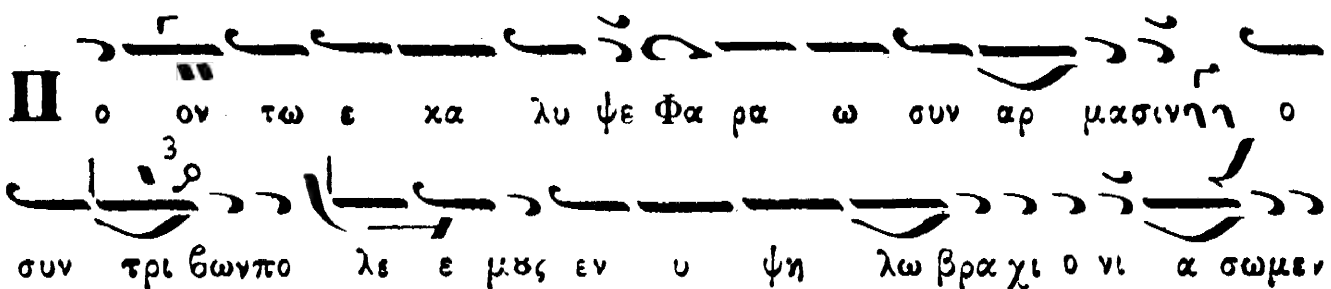 Π ο ον τω ε κα λυ ψε Φα ρα ω συν αρ μασινη η ο
συν τρι βωνπο λε ε μους εν υ ψη λω βρα χι ο νι α σωμεν